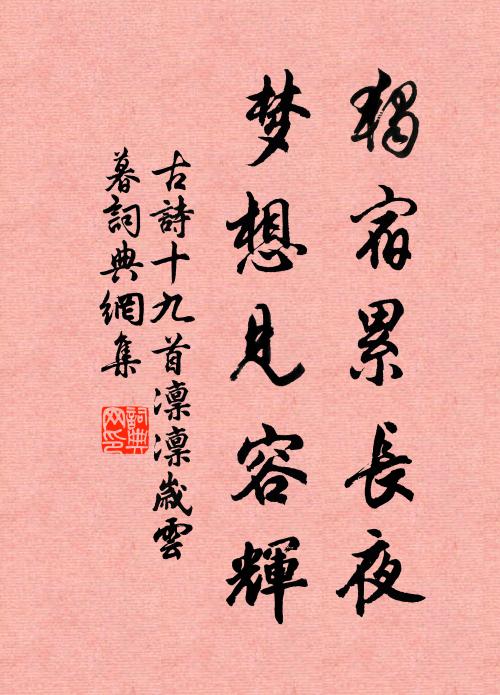 獨宿累长夜
梦想見容輝
古詩十九首凛凛嵗雲
暮詞典網集
詞典网印